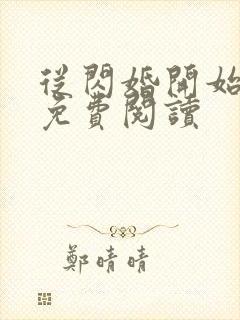 從閃婚開始
免費閱讀
鄭晴晴